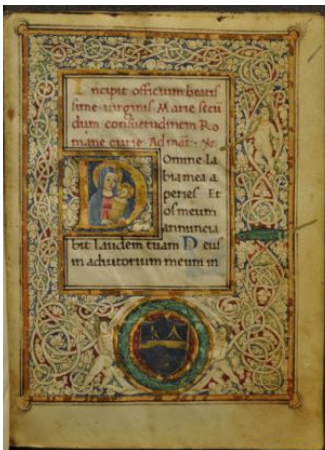 Incipit officium beatis
sime virginis Marie secū
dum consuetudinem Ro
mane curie. Ad mat.
Domine la
bia mea a
peries Et
os meum
annuncia
bit laudem tuam Deus
in adiutorium meum in